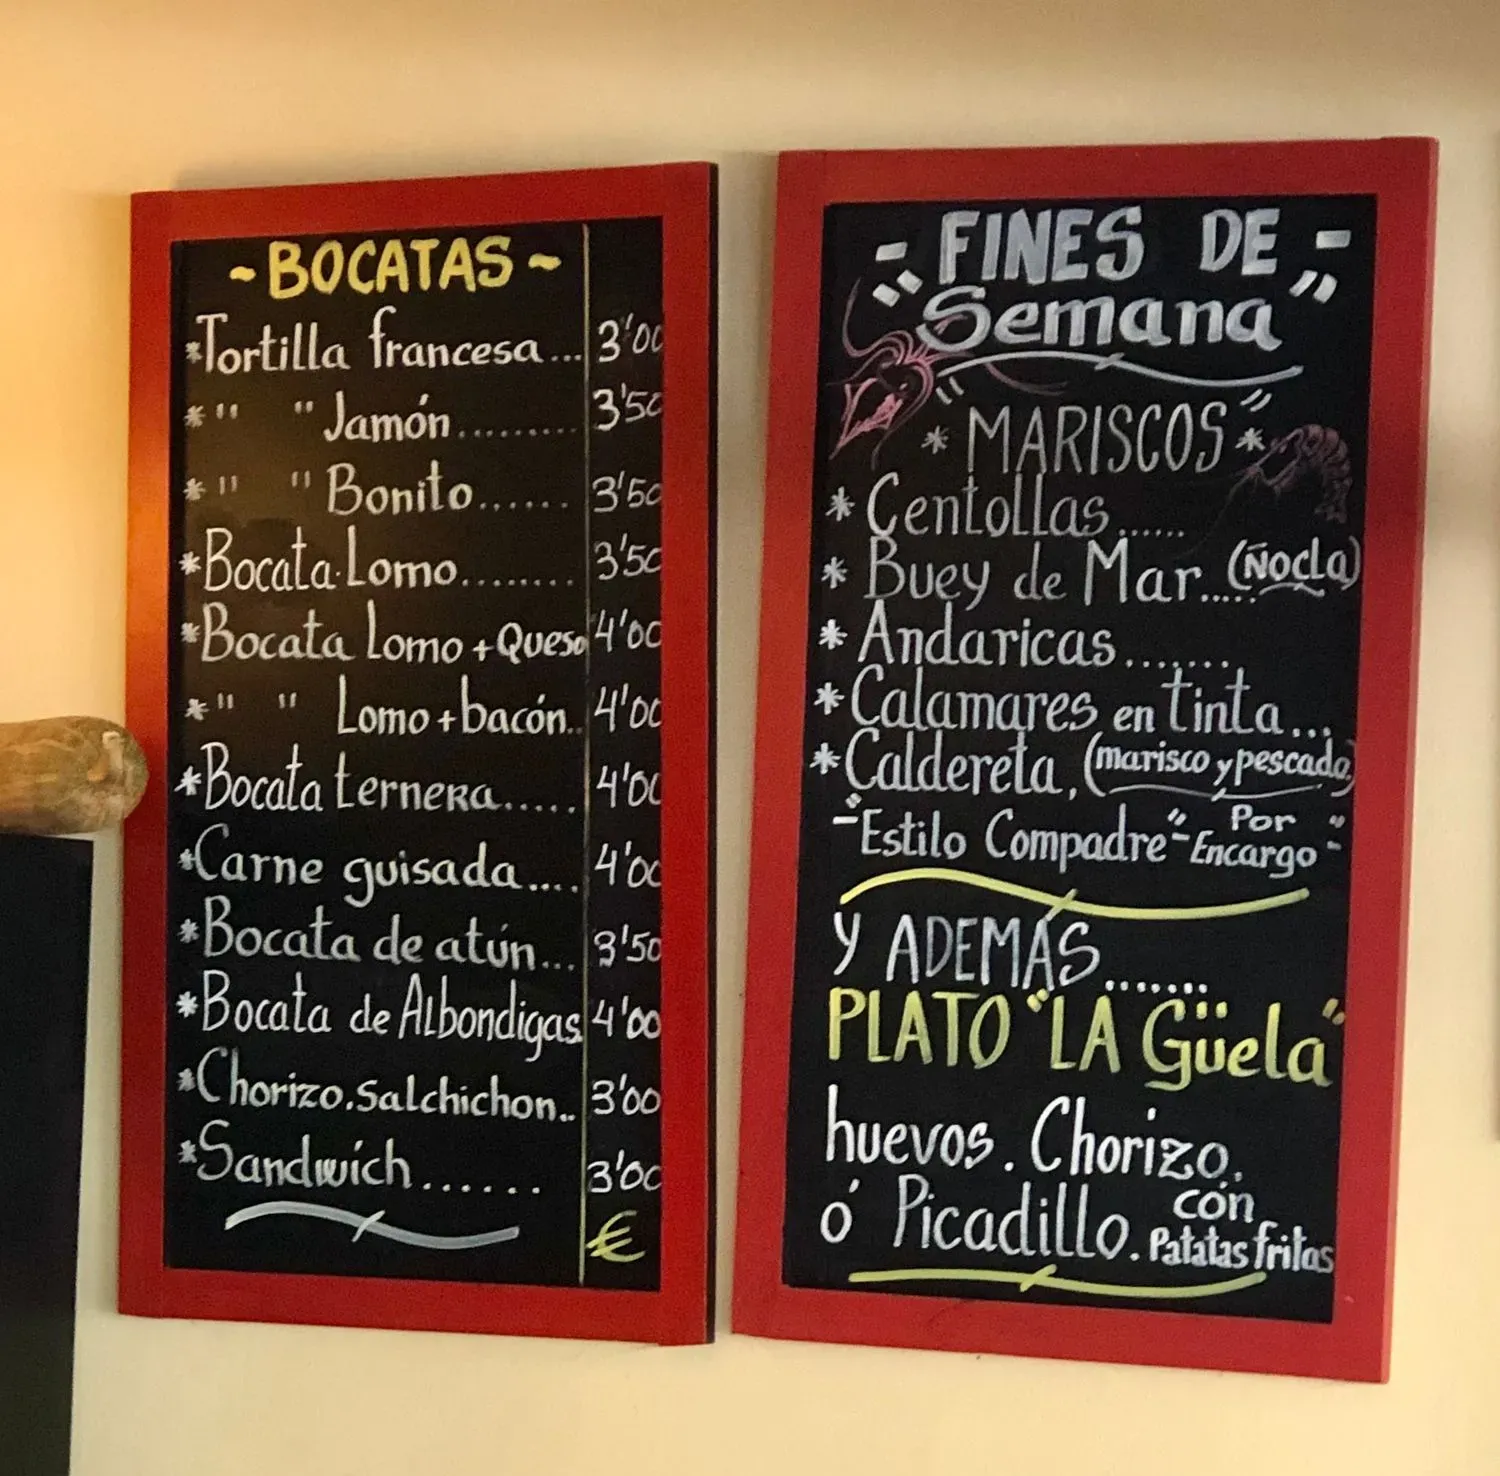 ~ BOCATAS ~
*Tortilla francesa... 3'00
* " " Jamón......... 3'50
* " " Bonito...... 3'50
*Bocata Lomo........ 3'50
*Bocata Lomo + Queso 4'00
* " " Lomo + bacón.. 4'00
*Bocata ternera..... 4'00
*Carne guisada.... 4'00
*Bocata de atún... 3'50
*Bocata de Albondigas 4'00
*Chorizo. Salchichon.. 3'00
*Sandwích...... 3'00
€
- FINES DE -
"Semana"
* "MARISCOS" *
* Centollas......
* Buey de Mar...... (Ñocla)
* Andaricas.......
* Calamares en tinta...
* Caldereta, (marisco y pescado)
-"Estilo Compadre"- Por Encargo"-
Y ADEMÁS.......
PLATO "LA Güela"
huevos. Chorizo.
ó Picadillo. cón
Patatas fritas